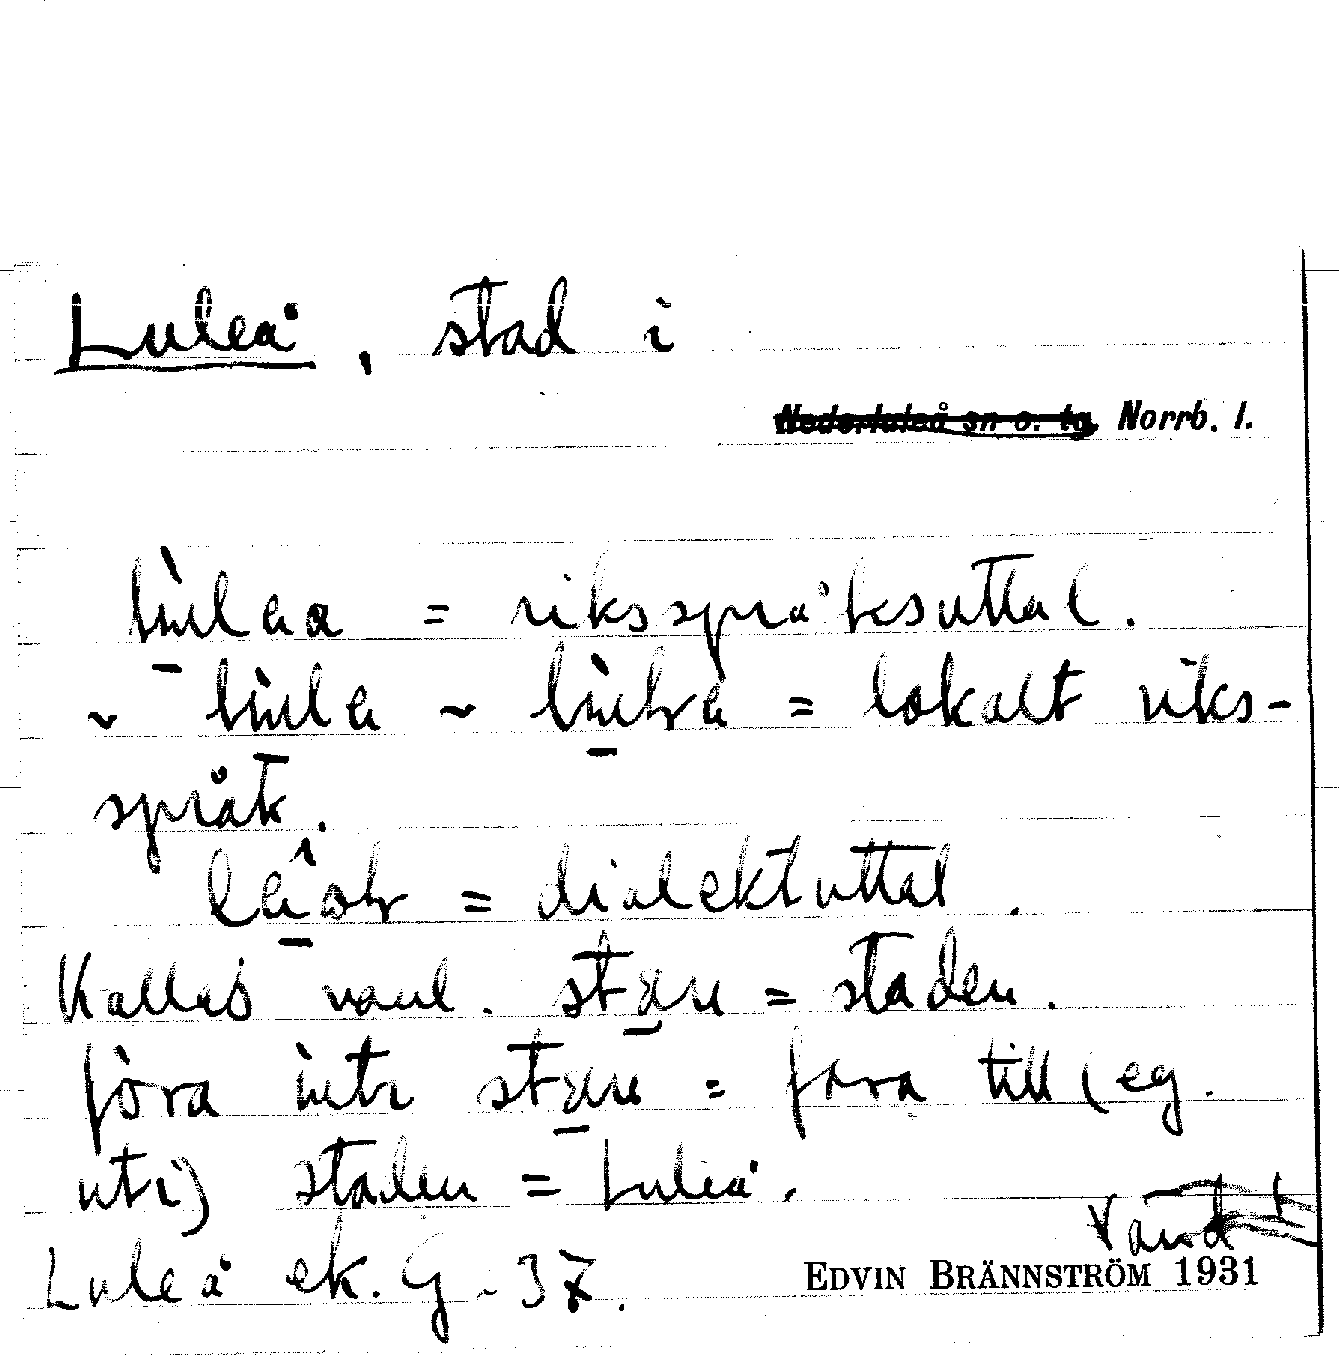 Luleå, stad i
Nederluleå sn o. tg. Norrb. l.
= riksspråksuttal.
~ ~ = lokalt riks-
språk.
= dialektuttal.
Kallas vanl. = staden.
föra = fara till (eg.
uti) staden = Luleå.
Vänd!
Luleå ek. G. 37.
EDVIN BRÄNNSTRÖM 1931